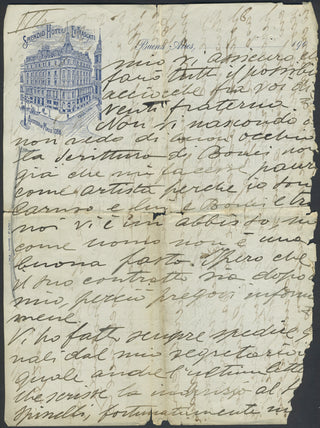 III
Splendid Hotel
Buenos Aires,
mio vi assicuro
farò tutto il possibile
acciocchè fra voi di-
venti fraterna.
Non vi nascondo
non vedo di buon occhio
la scrittura di Bonci, no
già che mi facesse paura
come artista perchè io son
Caruso e lui è Bonci e tra
noi vi è un abbisso, ma
come uomo non è una
buona pasta. Spero che
il suo contratto sia dopo
mio, perciò pregovi informar
mene.
Vi ho fatto sempre spedire
vali dal mio segretario
quale anche l'ultima lettera
che scrisse la
Spinelli, fortunatamente